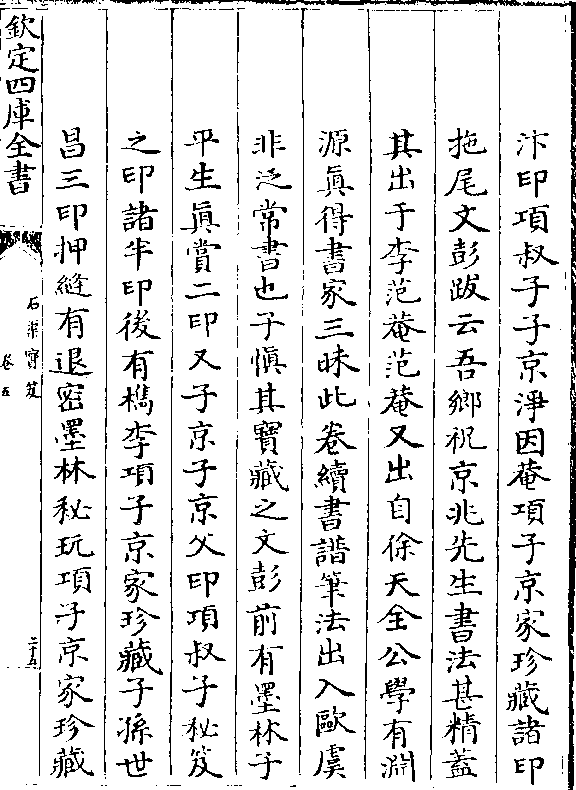 汴印項叔子子京淨因菴項子京家珍藏諸印
拖尾文彭跋云吾鄉祝京兆先生書法甚精葢
其出于李范菴范菴又出自徐天全公學有淵
源眞得書家三昧此卷續書譜筆法出入歐虞
非泛常書也子愼其寶藏之文彭前有墨林子
平生眞賞二印又子京子京父印項叔子秘笈
之印諸半印後有檇李項子京家珍藏子孫世
昌三印押縫有退密墨林秘玩項子京家珍藏
欽定四庫全書
石渠寶笈
卷五
二十五